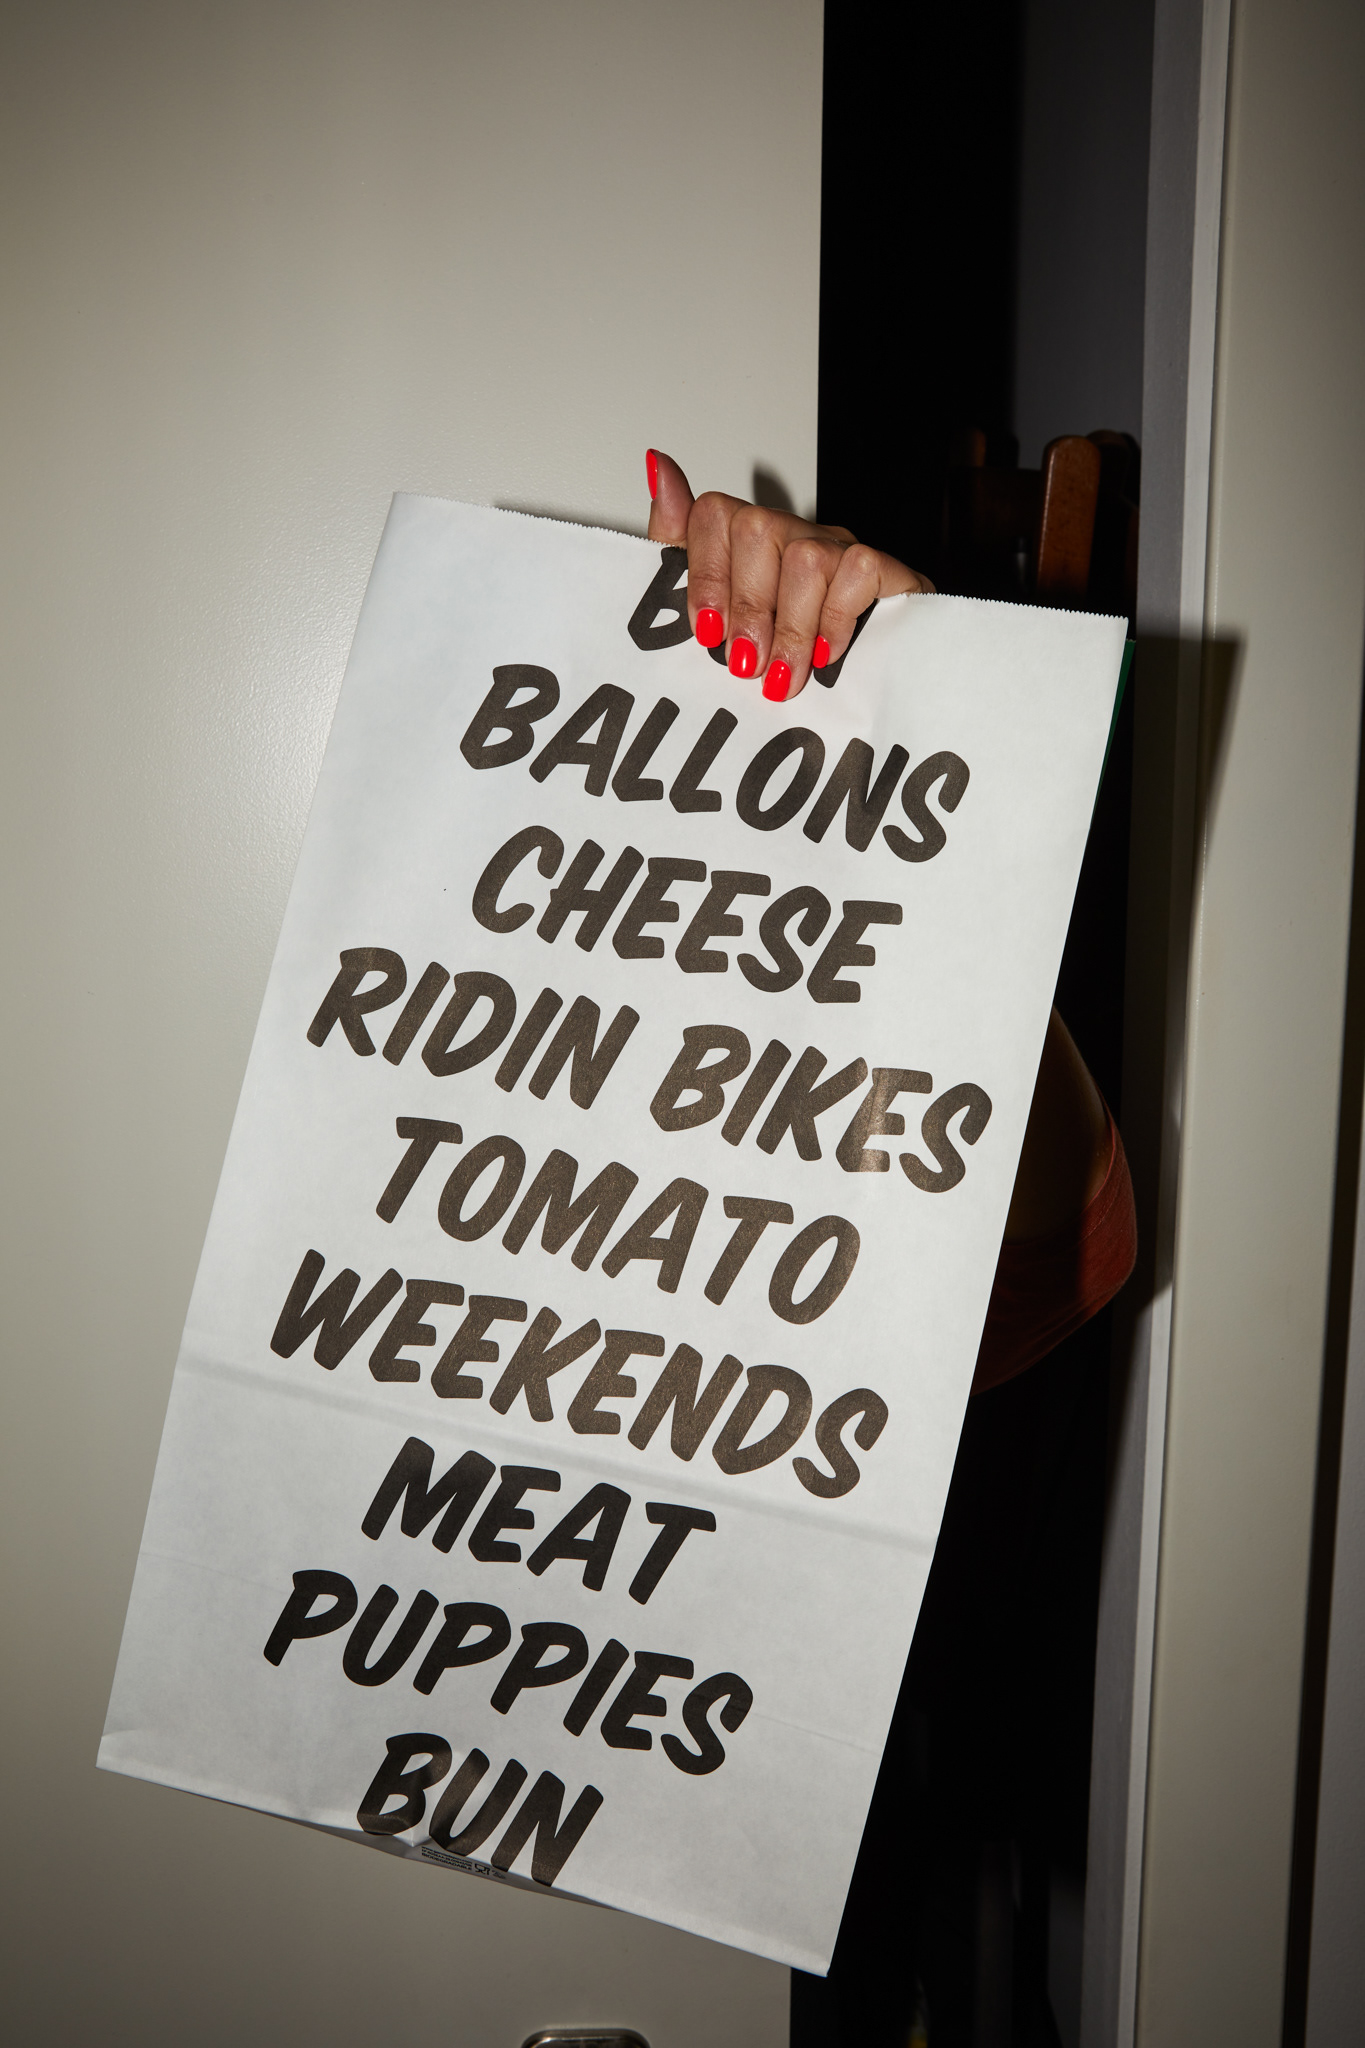 BALLONS
CHEESE
RIDIN BIKES
TOMATO
WEEKENDS
MEAT
PUPPIES
BUN